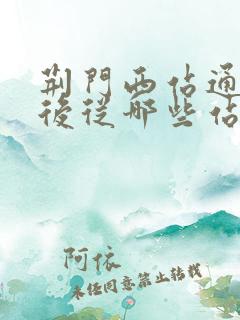 荆門西佔通
後從哪些佔
阿依
未经同意禁止转载